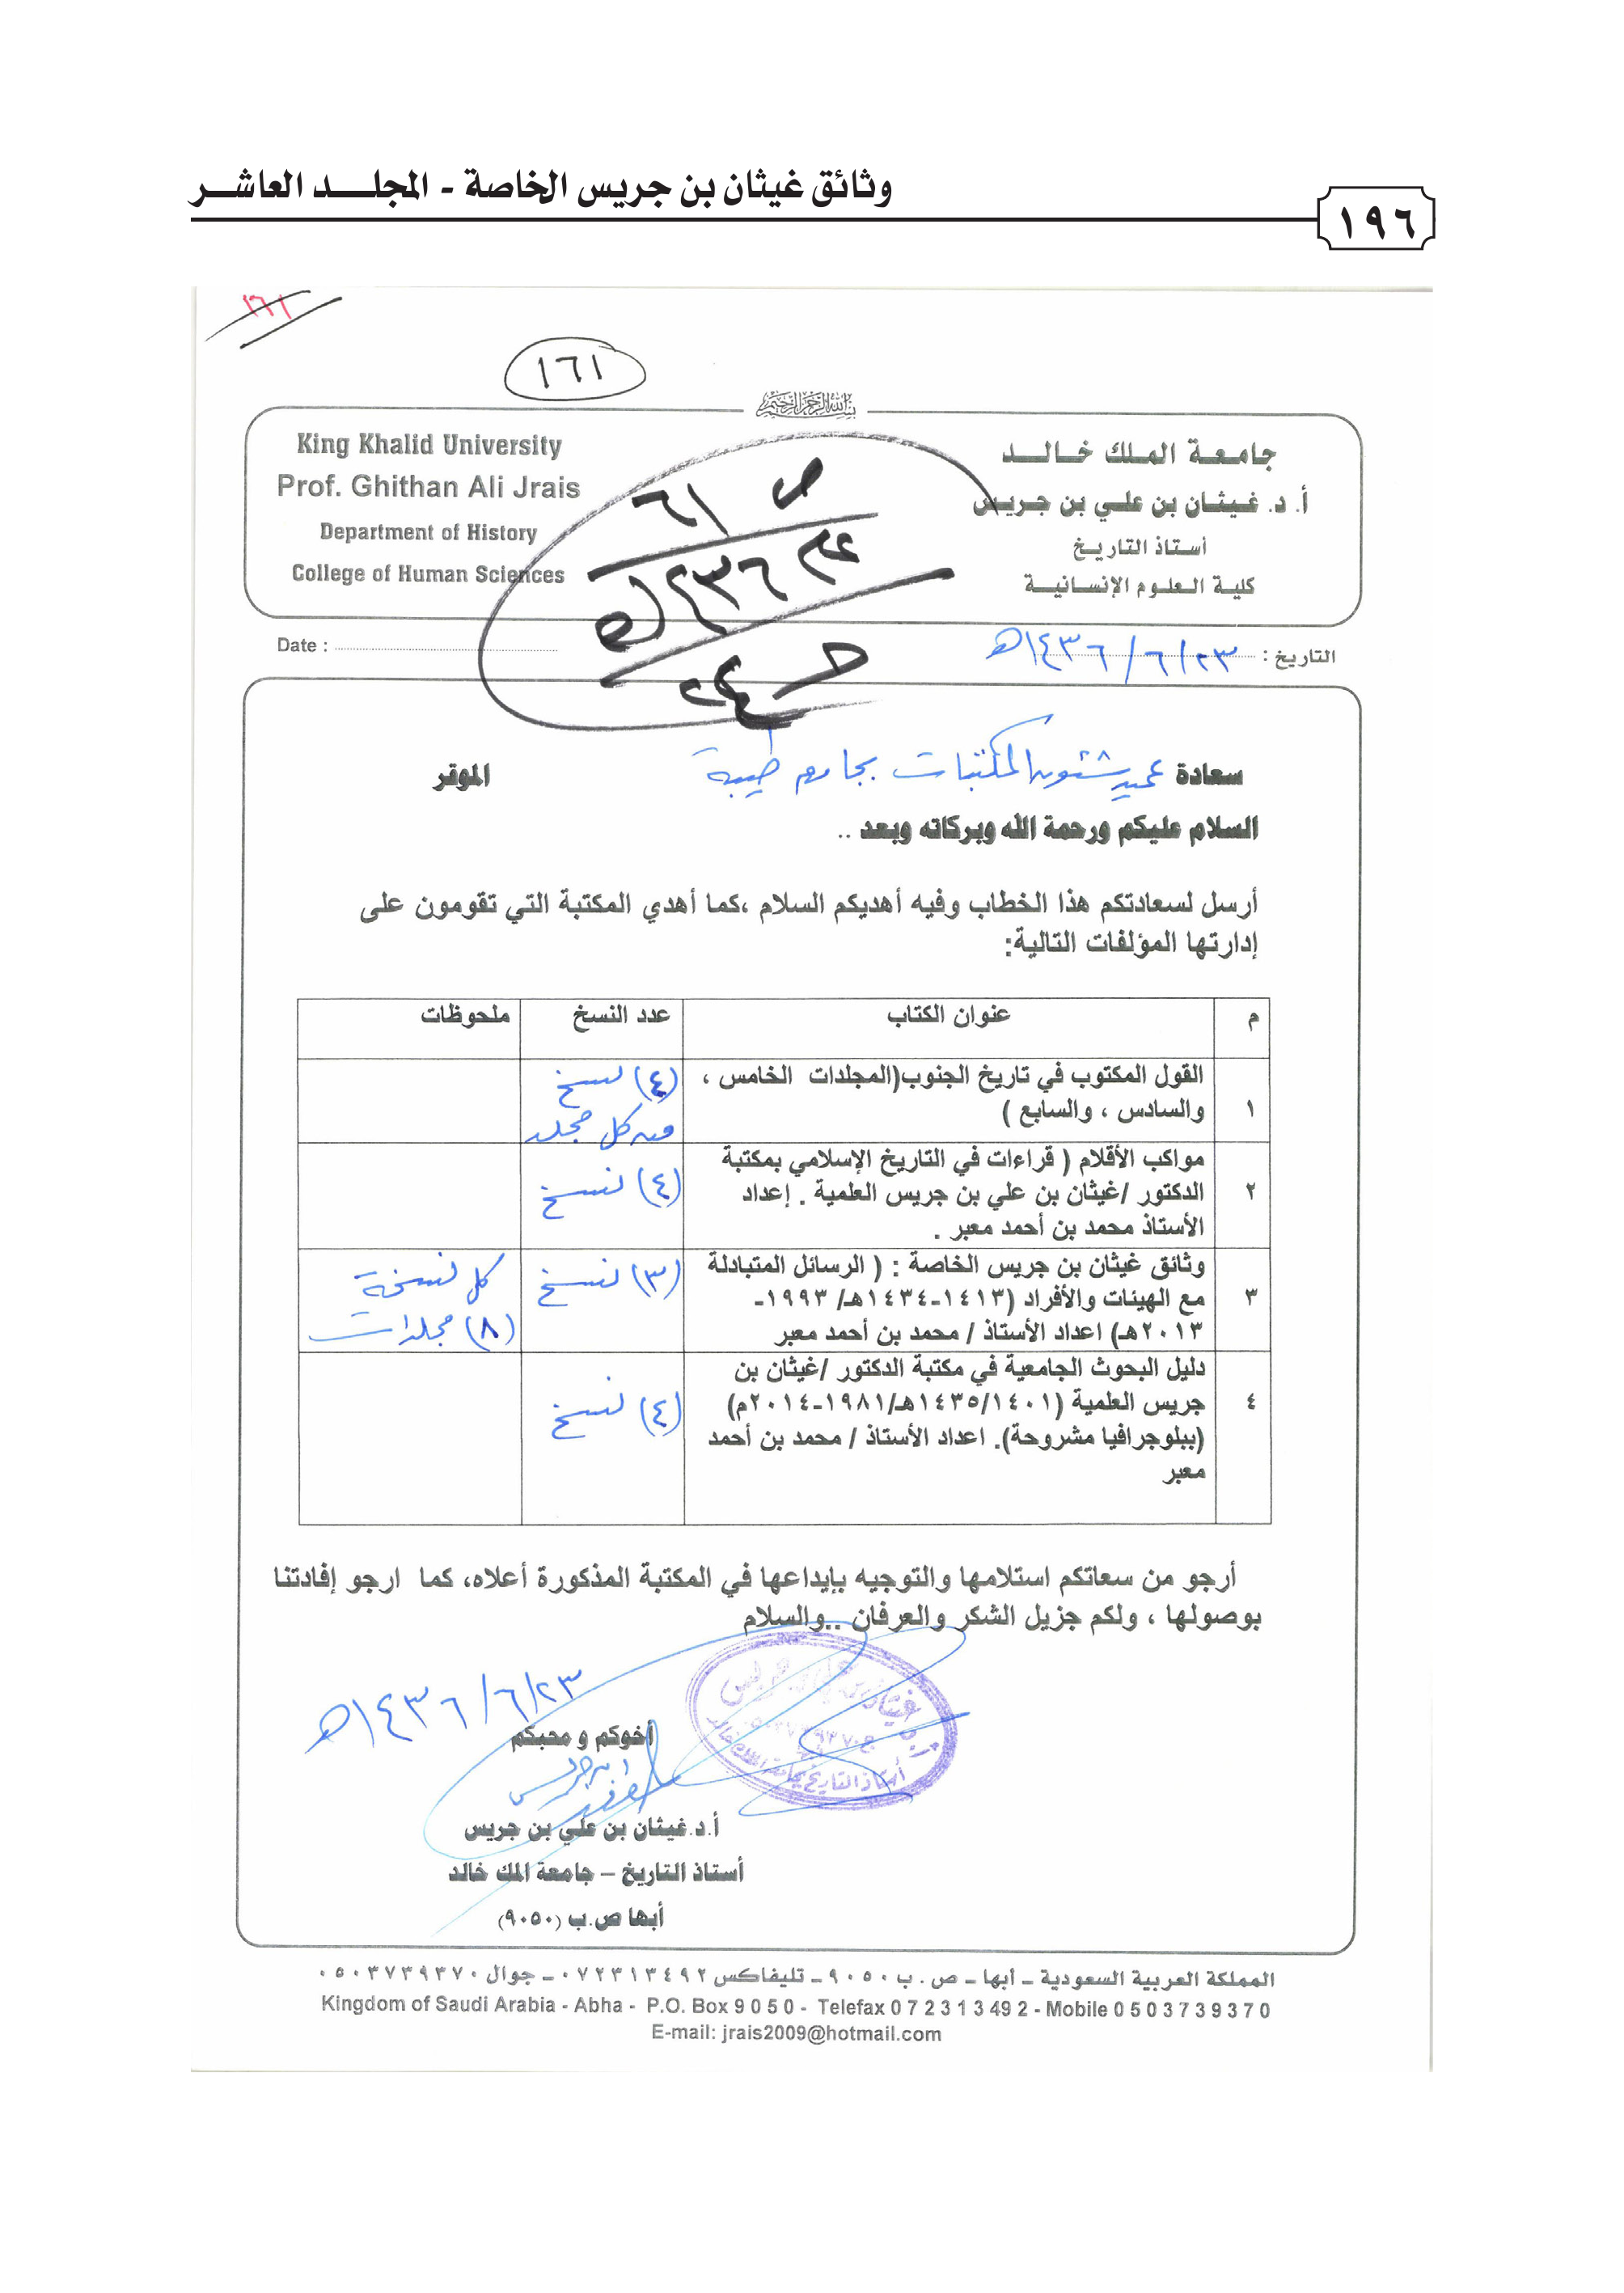 وثائق غيثان بن جريس الخاصة - المجلد العاشر
١٩٦
١٦١
١٦١
بسم الله الرحمن الرحيم
King Khalid University
Prof. Ghithan Ali Jrais
Department of History
College of Human Sciences
جامعة الملك خالد
أ. د. غيثان بن علي بن جريس
أستاذ التاريخ
كلية العلوم الإنسانية
Date :
التاريخ : ٢٣/ ٦/ ١٤٣٦هـ
سعادة عميد شئون المكتبات بجامعة طيبة الموقر
السلام عليكم ورحمة الله وبركاته وبعد ..
أرسل لسعادتكم هذا الخطاب وفيه أهديكم السلام ،كما أهدي المكتبة التي تقومون على
إدارتها المؤلفات التالية:
م عنوان الكتاب عدد النسخ ملحوظات
١ القول المكتوب في تاريخ الجنوب(المجلدات الخامس ،
والسادس ، والسابع )
(٤) نسخ
من كل مجلد
٢ مواكب الأقلام ( قراءات في التاريخ الإسلامي بمكتبة
الدكتور /غيثان بن علي بن جريس العلمية . إعداد
الأستاذ محمد بن أحمد معبر .
(٤) نسخ
٣ وثائق غيثان بن جريس الخاصة : ( الرسائل المتبادلة
مع الهيئات والأفراد (١٤١٣-١٤٣٤هـ/ ١٩٩٣-
٢٠١٣هـ) اعداد الأستاذ / محمد بن أحمد معبر
(٣) نسخ
كل نسخة
(٨) مجلدات
٤ دليل البحوث الجامعية في مكتبة الدكتور /غيثان بن
جريس العلمية (١٤٠١/١٤٣٥هـ/١٩٨١-٢٠١٤م)
(ببلوجرافيا مشروحة). اعداد الأستاذ / محمد بن أحمد
معبر
(٤) نسخ
أرجو من سعاتكم استلامها والتوجيه بإيداعها في المكتبة المذكورة أعلاه، كما ارجو إفادتنا
بوصولها ، ولكم جزيل الشكر والعرفان ..والسلام
٢٣/ ٦/ ١٤٣٦هـ
أخوكم و محبكم
أ.د.غيثان بن علي بن جريس
أستاذ التاريخ – جامعة الملك خالد
أبها ص.ب (٩٠٥٠)
المملكة العربية السعودية ــ أبها ــ ص . ب ٩٠٥٠ ــ تليفاكس ٠٧٢٣١٣٤٩٢ ــ جوال ٠٥٠٣٧٣٩٣٧٠
Kingdom of Saudi Arabia - Abha - P.O. Box 9 0 5 0 - Telefax 0 7 2 3 1 3 49 2 - Mobile 0 5 0 3 7 3 9 3 7 0
E-mail: jrais2009@hotmail.com